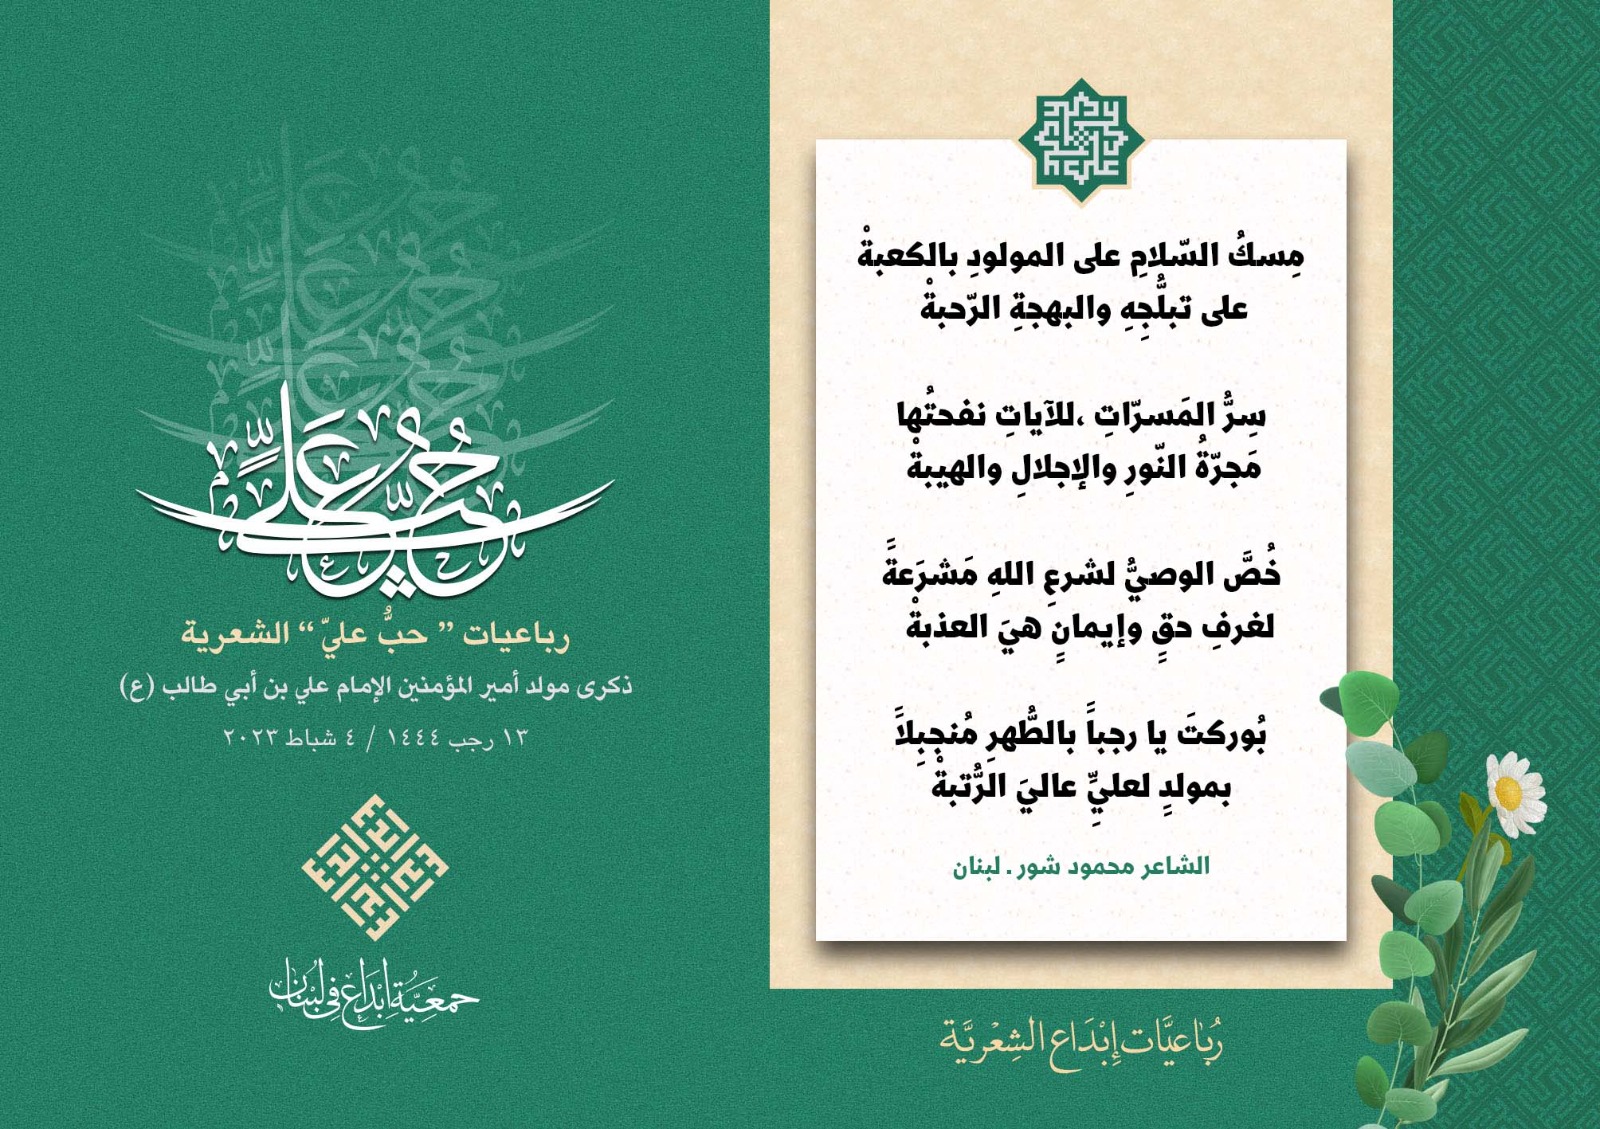 مِسكُ السّلامِ على المولودِ بالكعبةْ
على تبلُّجِهِ والبهجةِ الرّحبةْ
سِرُّ المَسرّاتِ ،للآياتِ نفحتُها
مَجرّةُ النّورِ والإجلالِ والهيبةْ
خُصَّ الوصيُّ لشرعِ اللهِ مَشرَعةً
لغرفِ حقٍ وإيمانٍ هيَ العذبةْ
بُوركتَ يا رجباً بالطُّهرِ مُنجبِلاً
بمولدٍ لعليِّ عاليَ الرُّتبةْ
الشاعر محمود شور . لبنان
رُبَاعيَّات إِبْدَاع الشِعْريَّة
حُبُّ عَلِيٍّ
رباعيات ” حبُّ عليّ “ الشعرية
ذكرى مولد أمير المؤمنين الإمام علي بن أبي طالب (ع)
١٣ رجب ١٤٤٤ / ٤ شباط ٢٠٢٣
جمعيَّة إبْدَاع في لبْنان